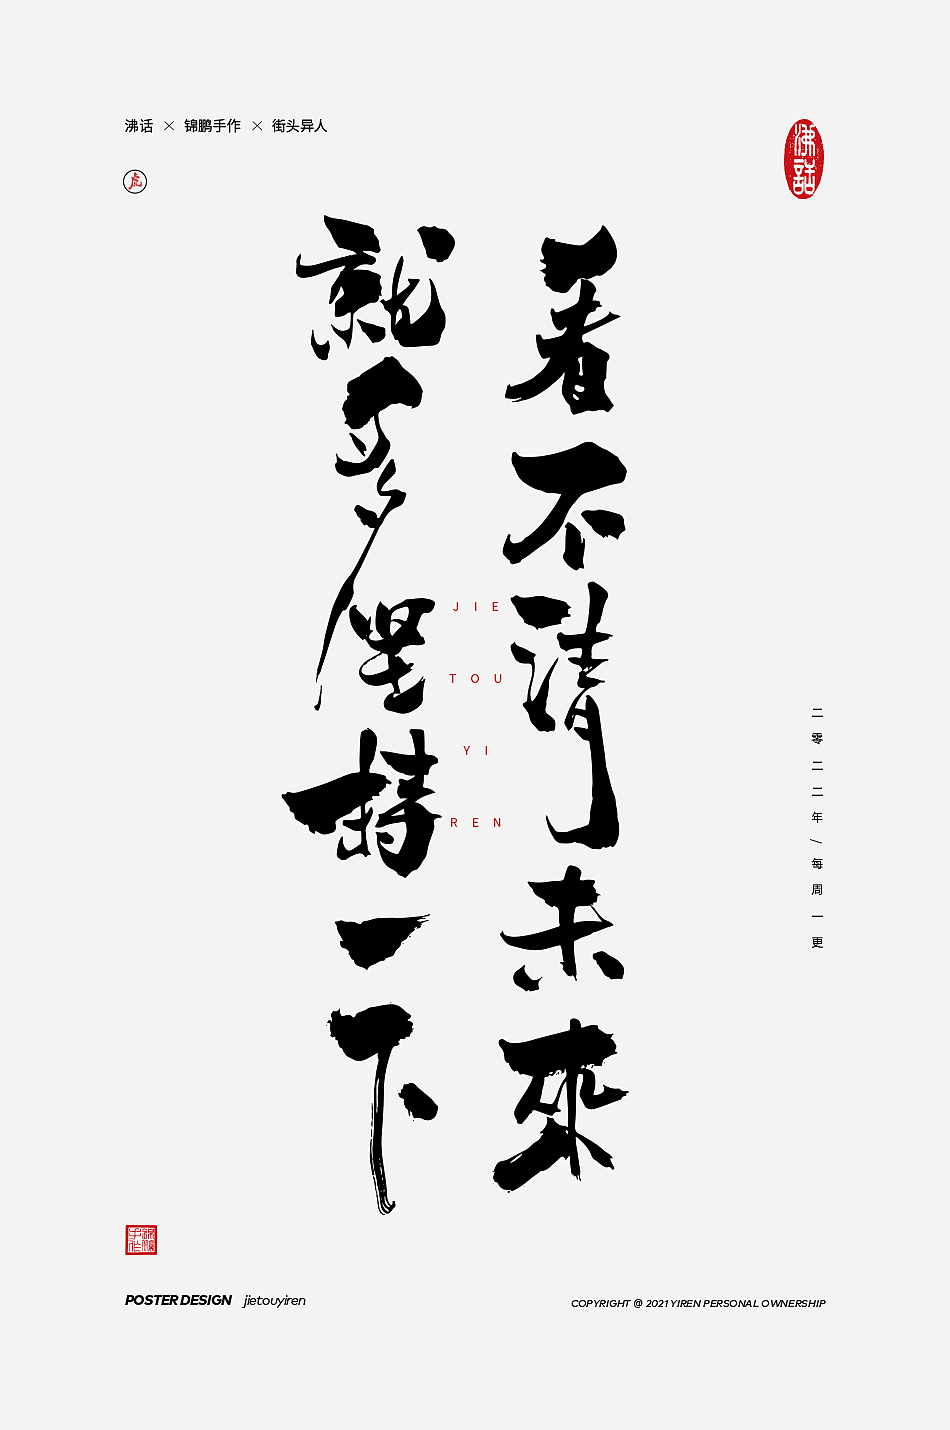 沸话 × 锦鹏手作 × 街头异人
虎
沸話
看不清未來
就多堅持一下
JIE
TOU
YI
REN
二零二二年/每周一更
锦鹏手作
POSTER DESIGN jietouyiren
COPYRIGHT @ 2021 YIREN PERSONAL OWNERSHIP